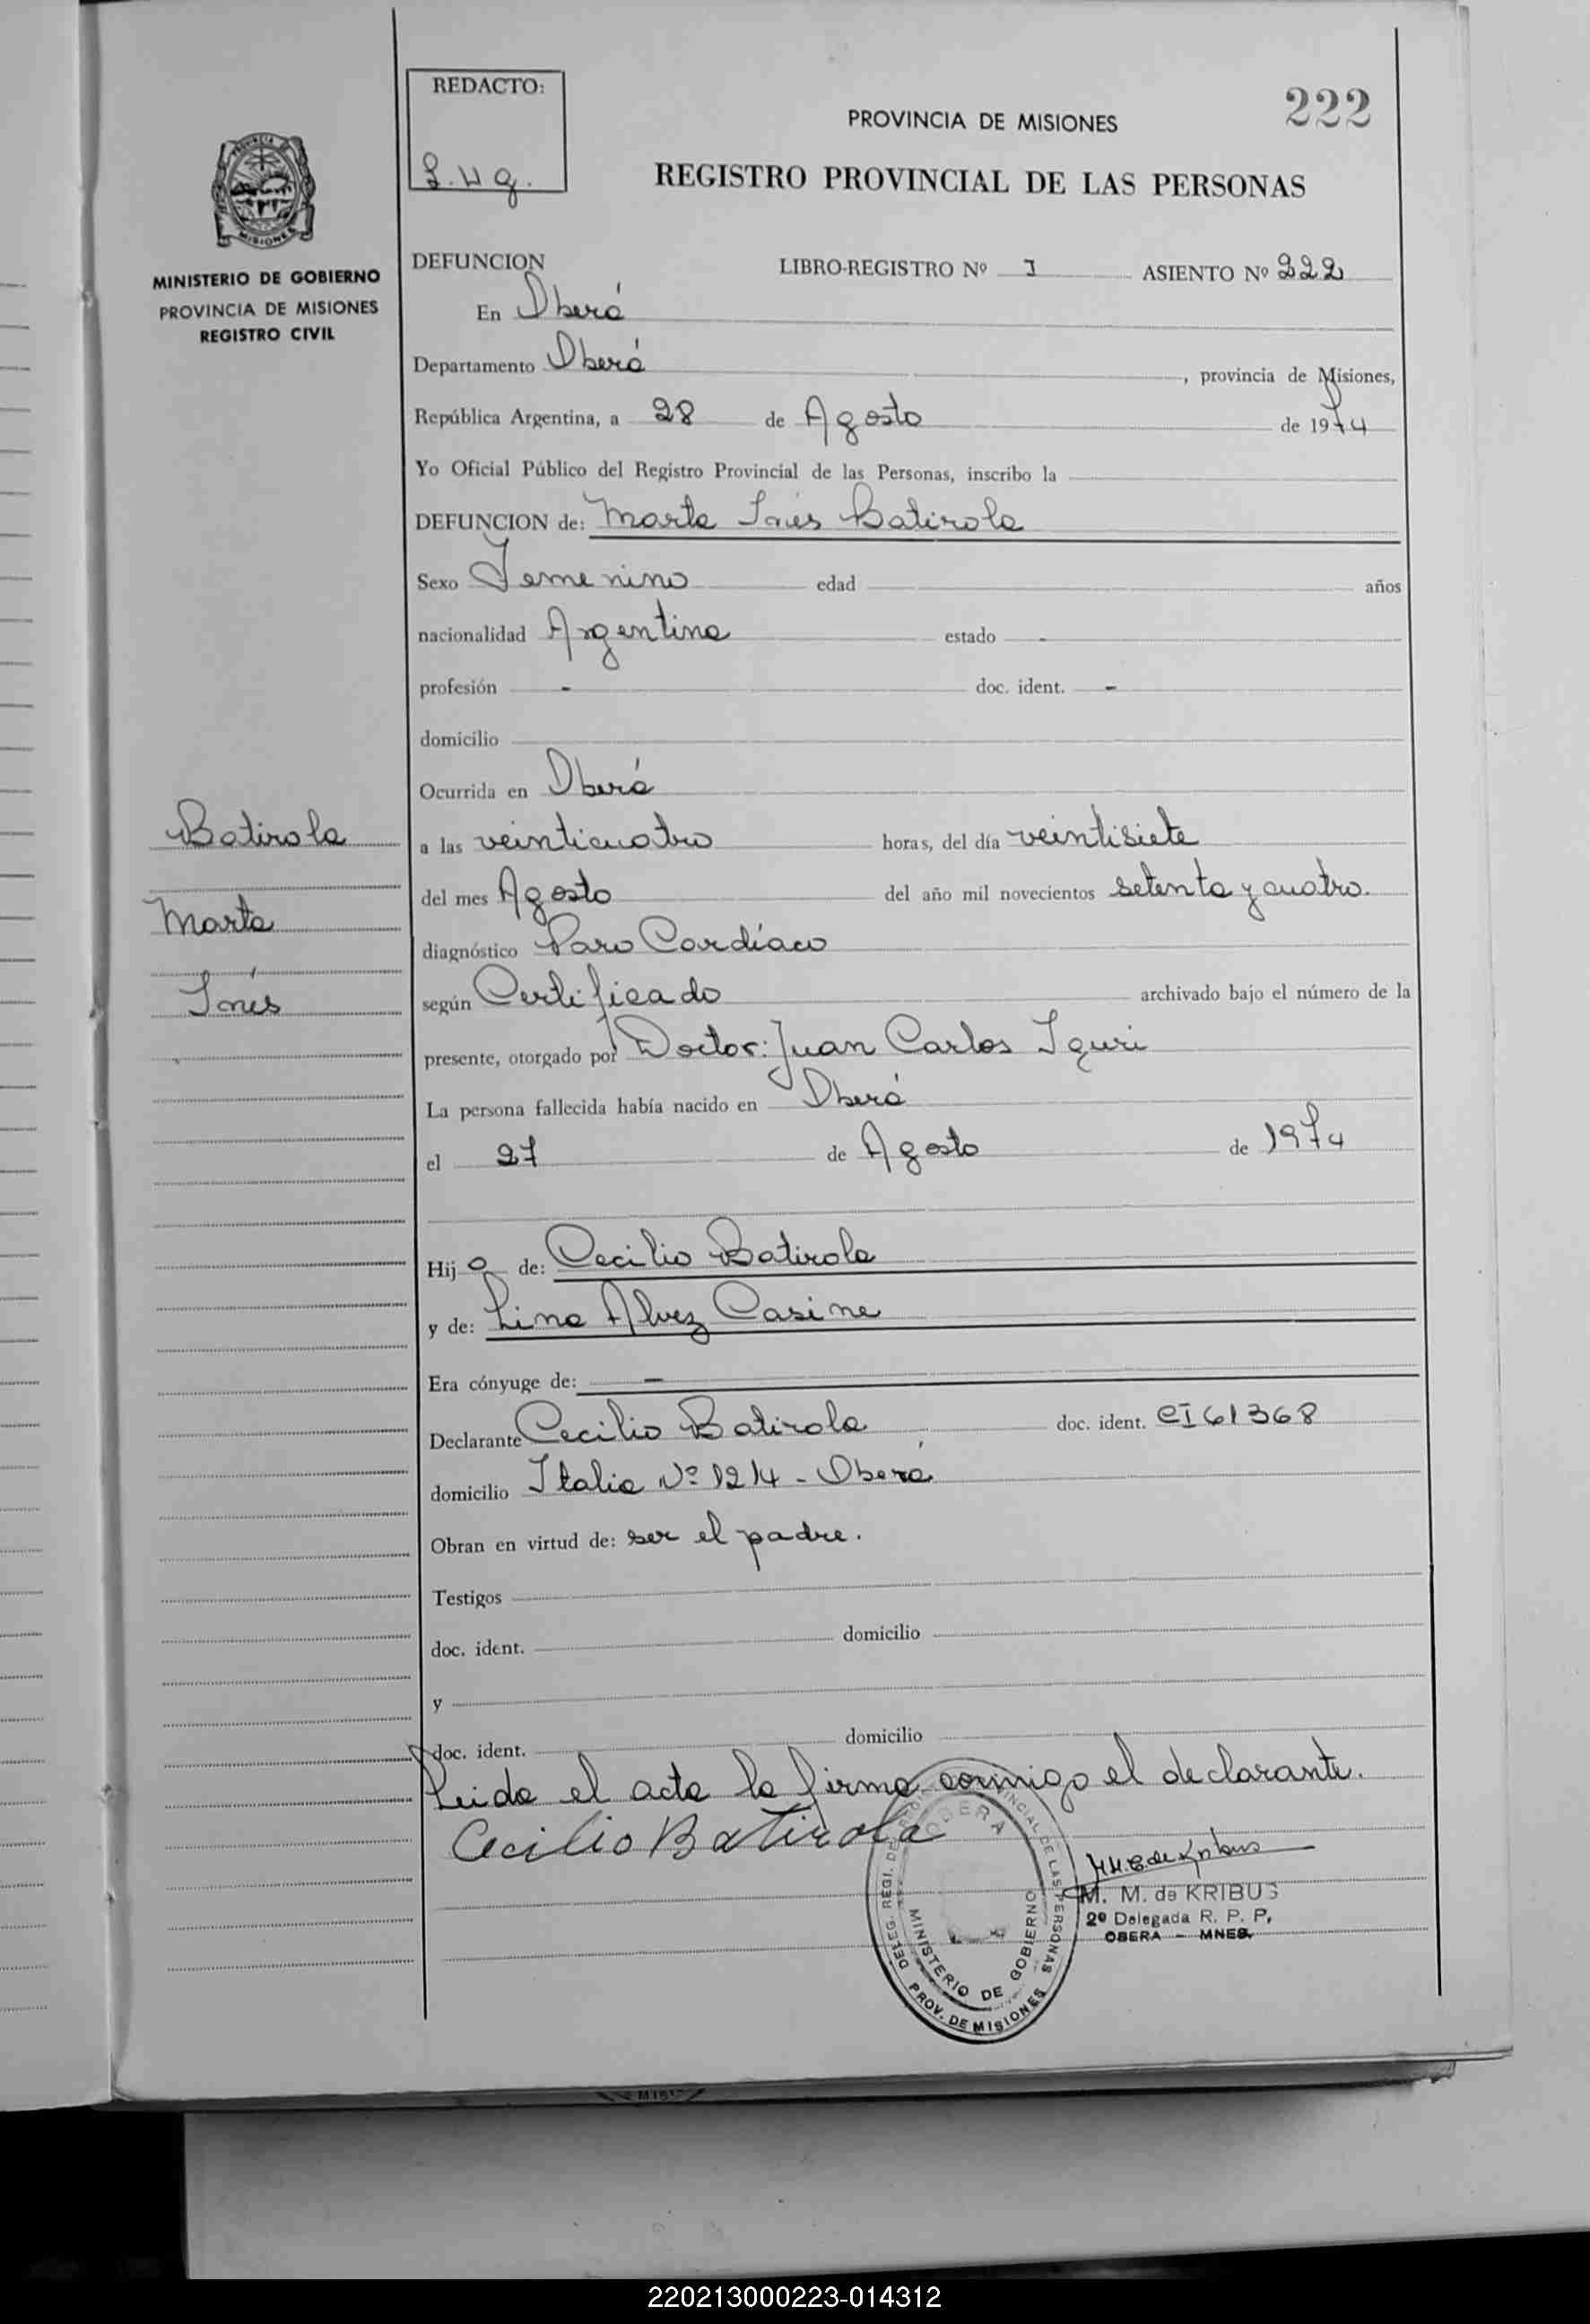 REDACTO:
PROVINCIA DE MISIONES
222
REGISTRO PROVINCIAL DE LAS PERSONAS
MISIONES
MINISTERIO DE GOBIERNO
PROVINCIA DE MISIONES
REGISTRO CIVIL
DEFUNCION
LIBRO-REGISTRO Nº I ASIENTO Nº 222
En Oberá
Departamento Oberá, provincia de Misiones,
República Argentina, a 28 de Agosto de 1974
Yo Oficial Público del Registro Provincial de las Personas, inscribo la
DEFUNCION de: Marta Inés Batirola
Sexo Femenino edad años
nacionalidad Argentina estado -
profesión - doc. ident. -
domicilio
Ocurrida en Oberá
a las veinticuatro horas, del día veintisiete
del mes Agosto del año mil novecientos setenta y cuatro.
diagnóstico Paro Cardíaco
según Certificado archivado bajo el número de la
presente, otorgado por Doctor: Juan Carlos Iguri
La persona fallecida había nacido en Oberá
el 27 de Agosto de 1974
Hija de: Cecilio Batirola
y de: Lina Alvez Casine
Era cónyuge de: -
Declarante Cecilio Batirola doc. ident. CI 61368
domicilio Italia Nº 1214 - Oberá
Obran en virtud de: ser el padre.
Testigos
doc. ident. domicilio
y
doc. ident. domicilio
Leida el acta la firma conmigo el declarante.
Cecilio Batirola
M. M. de KRIBUS
2º Delegada R. P. P.
OBERA - MNES.
MINISTERIO DE GOBIERNO
PROV. DE MISIONES
Batirola
Marta
Inés
220213000223-014312